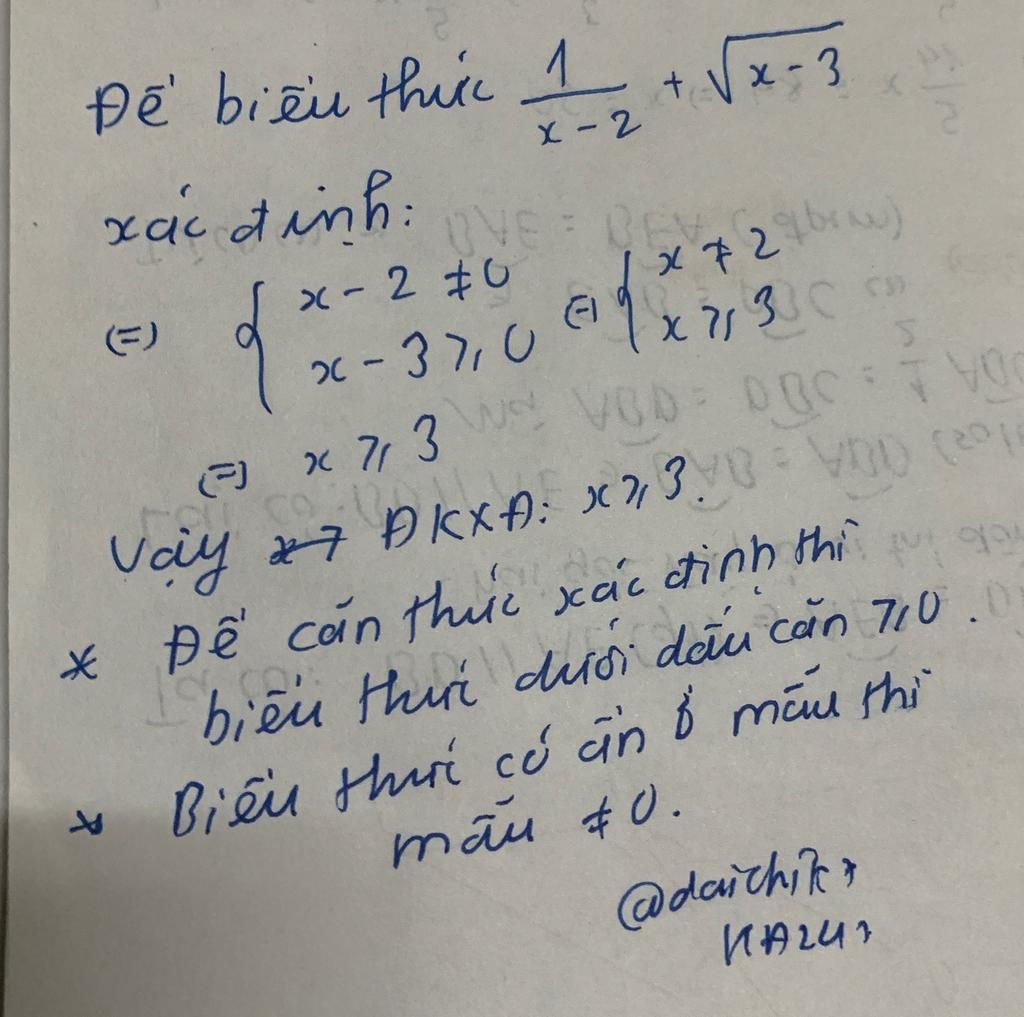 Để biểu thức 1/(x - 2) + √(x - 3)
xác định:
(=) { x - 2 ≠ 0 (=) { x ≠ 2
x - 3 ⩾ 0 x ⩾ 3
(=) x ⩾ 3
Vậy ĐKXĐ: x ⩾ 3.
* Để căn thức xác định thì
biểu thức dưới dấu căn ⩾ 0.
* Biểu thức có ẩn ở mẫu thì
mẫu ≠ 0.
@daichik